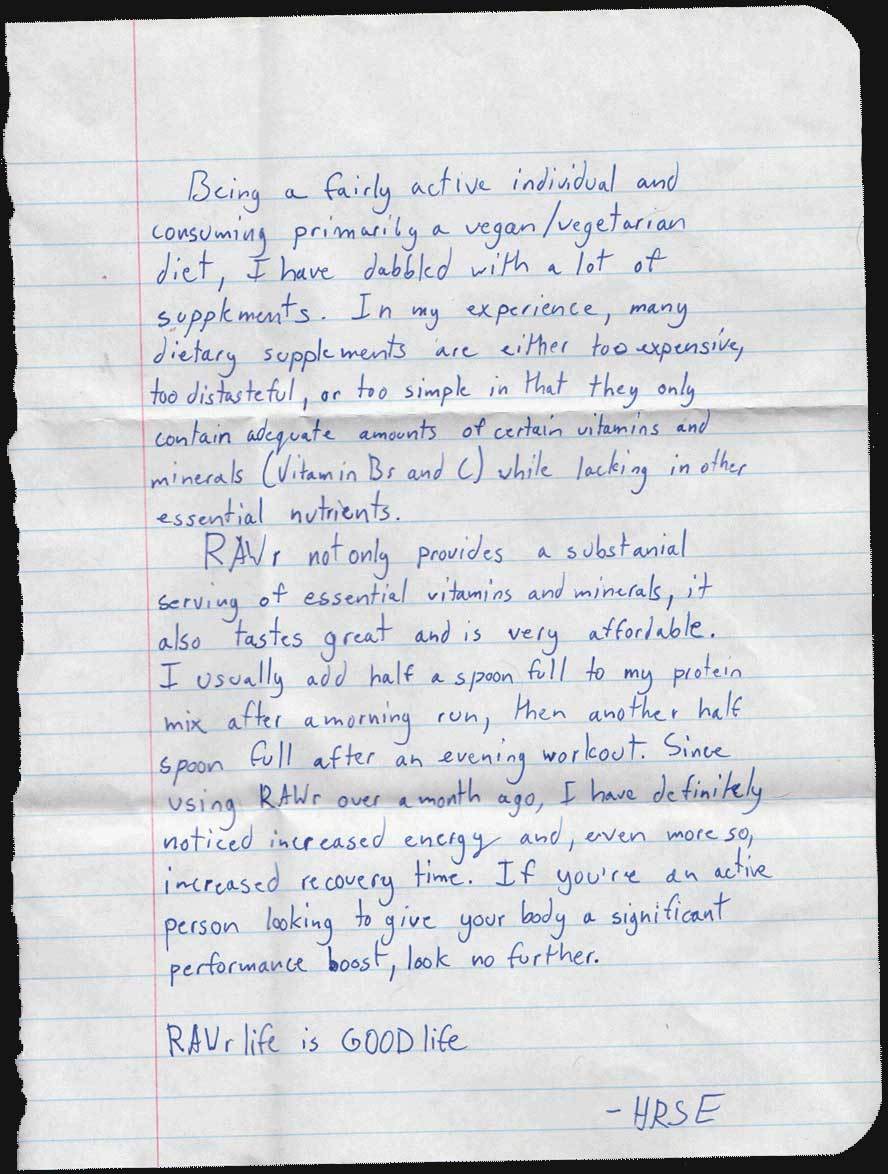 Being a fairly active individual and
consuming primarily a vegan/vegetarian
diet, I have dabbled with a lot of
supplements. In my experience, many
dietary supplements are either too expensive,
too distasteful, or too simple in that they only
contain adequate amounts of certain vitamins and
minerals (Vitamin Bs and C) while lacking in other
essential nutrients.
RAWr not only provides a substanial
serving of essential vitamins and minerals, it
also tastes great and is very affordable.
I usually add half a spoon full to my protein
mix after a morning run, then another half
spoon full after an evening workout. Since
using RAWr over a month ago, I have definitely
noticed increased energy and, even more so,
increased recovery time. If you're an active
person looking to give your body a significant
performance boost, look no further.
RAWr life is GOOD life
- HRSE